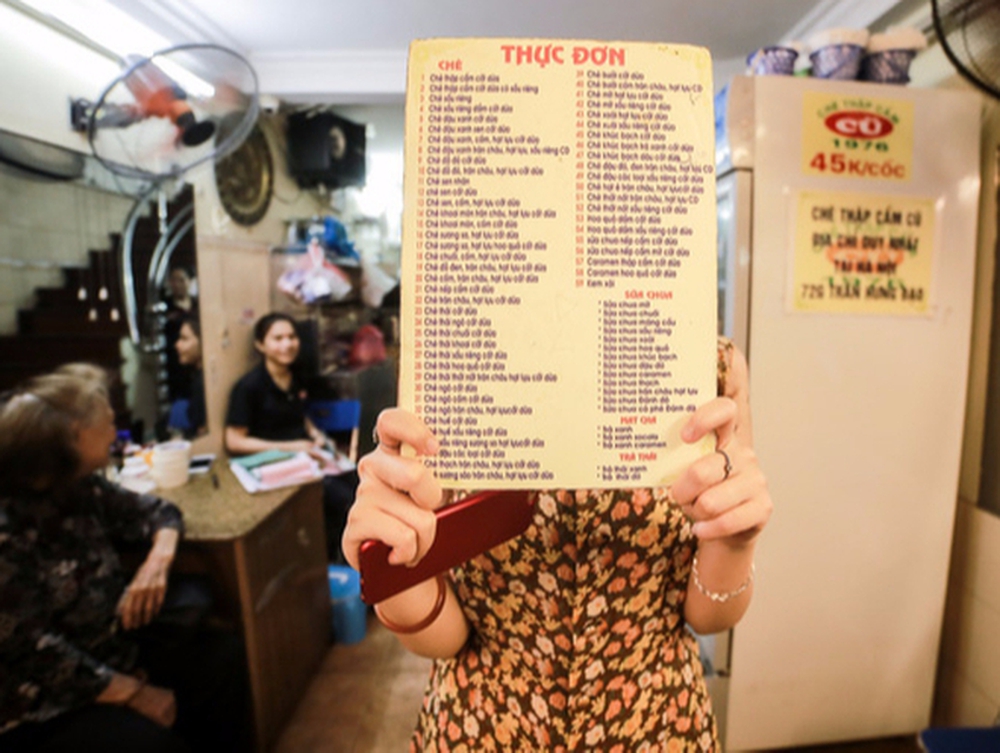 THỰC ĐƠN
CHÈ
1 Chè thập cẩm cốt dừa
2 Chè thập cẩm cốt dừa có sầu riêng
3 Chè sầu riêng
4 Chè sầu riêng dầm cốt dừa
5 Chè đậu xanh cốt dừa
6 Chè đậu xanh sen cốt dừa
7 Chè đậu xanh, cốm, hạt lựu cốt dừa
8 Chè đậu xanh trân châu, hạt lựu, sầu riêng CD
9 Chè đỗ đỏ cốt dừa
10 Chè đỗ đỏ, trân châu, hạt lựu cốt dừa
11 Chè sen nhãn
12 chè sen cốt dừa
13 Chè sen, cốm, hạt lựu cốt dừa
14 Chè khoai môn trân châu, hạt lựu cốt dừa
15 Chè khoai môn, cốm cốt dừa
16 Chè sương sa, hạt lựu cốt dừa
17 Chè sương sa, hạt lựu hoa quả cốt dừa
18 Chè chuối, cốm, hạt lựu cốt dừa
19 Chè đỗ đen, trân châu, hạt lựu cốt dừa
20 Chè cốm, trân châu, hạt lựu cốt dừa
21 Chè nếp cẩm cốt dừa
22 Chè trân châu, hạt lựu cốt dừa
23 Chè thái cốt dừa
24 Chè thái ngô cốt dừa
25 Chè thái chuối cốt dừa
26 Chè thái khoai cốt dừa
27 Chè thái sầu riêng cốt dừa
28 Chè thái hoa quả cốt dừa
29 Chè thái thốt nốt trân châu hạt lựu cốt dừa
30 Chè ngô cốt dừa
Chè ngô cốm cốt dừa
Chè ngô trân châu, hạt lựu cốt dừa
Chè huế cốt dừa
huế sầu riêng cốt dừa
sầu riêng sương sa hạt lựu cốt dừa
đậu các loại cốt dừa
Chè thạch trân châu, hạt lựu cốt dừa
sương sáo trân châu, hạt lựu cốt dừa
39 Chè bưởi cốt dừa
40 Chè bưởi cốm trân châu, hạt lựu CD
41 Chè mít hạt lựu cốt dừa
42 Chè mít sầu riêng cốt dừa
43 Chè xoài hạt lựu cốt dừa
44 Chè xoài sầu riêng cốt dừa
45 Chè khúc bạch cốt dừa
46 Chè khúc bạch bà xanh cốt dừa
47 Chè khúc bạch dâu cốt dừa
48 Chè đậu đỏ, đen trân châu, hạt lựu CD
49 Chè đậu các loại sầu riêng cốt dừa
50 Chè hạt é trân châu, hạt lựu cốt dừa
51 Chè thốt nốt trân châu, hạt lựu CD
52 Chè thốt nốt sầu riêng cốt dừa
53 Hoa quả dầm cốt dừa
54 Hoa quả dầm sầu riêng cốt dừa
55 sữa chua nếp cẩm cốt dừa
56 sữa chua nếp cẩm mít cốt dừa
57 Caramen thập cẩm cốt dừa
58 Caramen hoa quả cốt dừa
59 Kem xôi
SỮA CHUA
* Sữa chua mít
* Sữa chua chuối
* Sữa chua mãng cầu
* Sữa chua sầu riêng
* Sữa chua xoài
* Sữa chua hoa quả
* Sữa chua khúc bạch
* Sữa chua đậu đỏ
* Sữa chua caramen
* Sữa chua thạch
* Sữa chua trân châu hạt lựu
* Sữa chua đánh đá
* Sữa chua cà phê đánh đá
* bà xanh
* bà xanh socola
* bà xanh caramen
TRÀ THÁI
* trà thái xanh
* trà thái đỏ
CHÈ THẬP CẨM
CÔ
1976
45K/CỐC
CHÈ THẬP CẨM CÔ
ĐỊA CHỈ DUY NHẤT
TẠI HÀ NỘI
72G TRẦN HƯNG ĐẠO